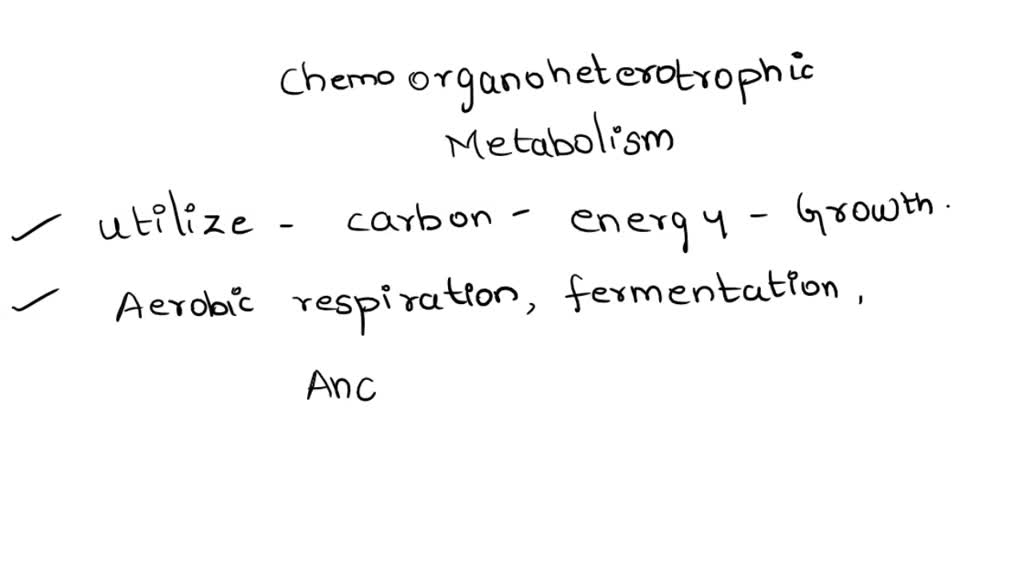 Chemo organoheterotrophic
Metabolism
✓ utilize - carbon - energy - Growth.
✓ Aerobic respiration, fermentation,
Anc